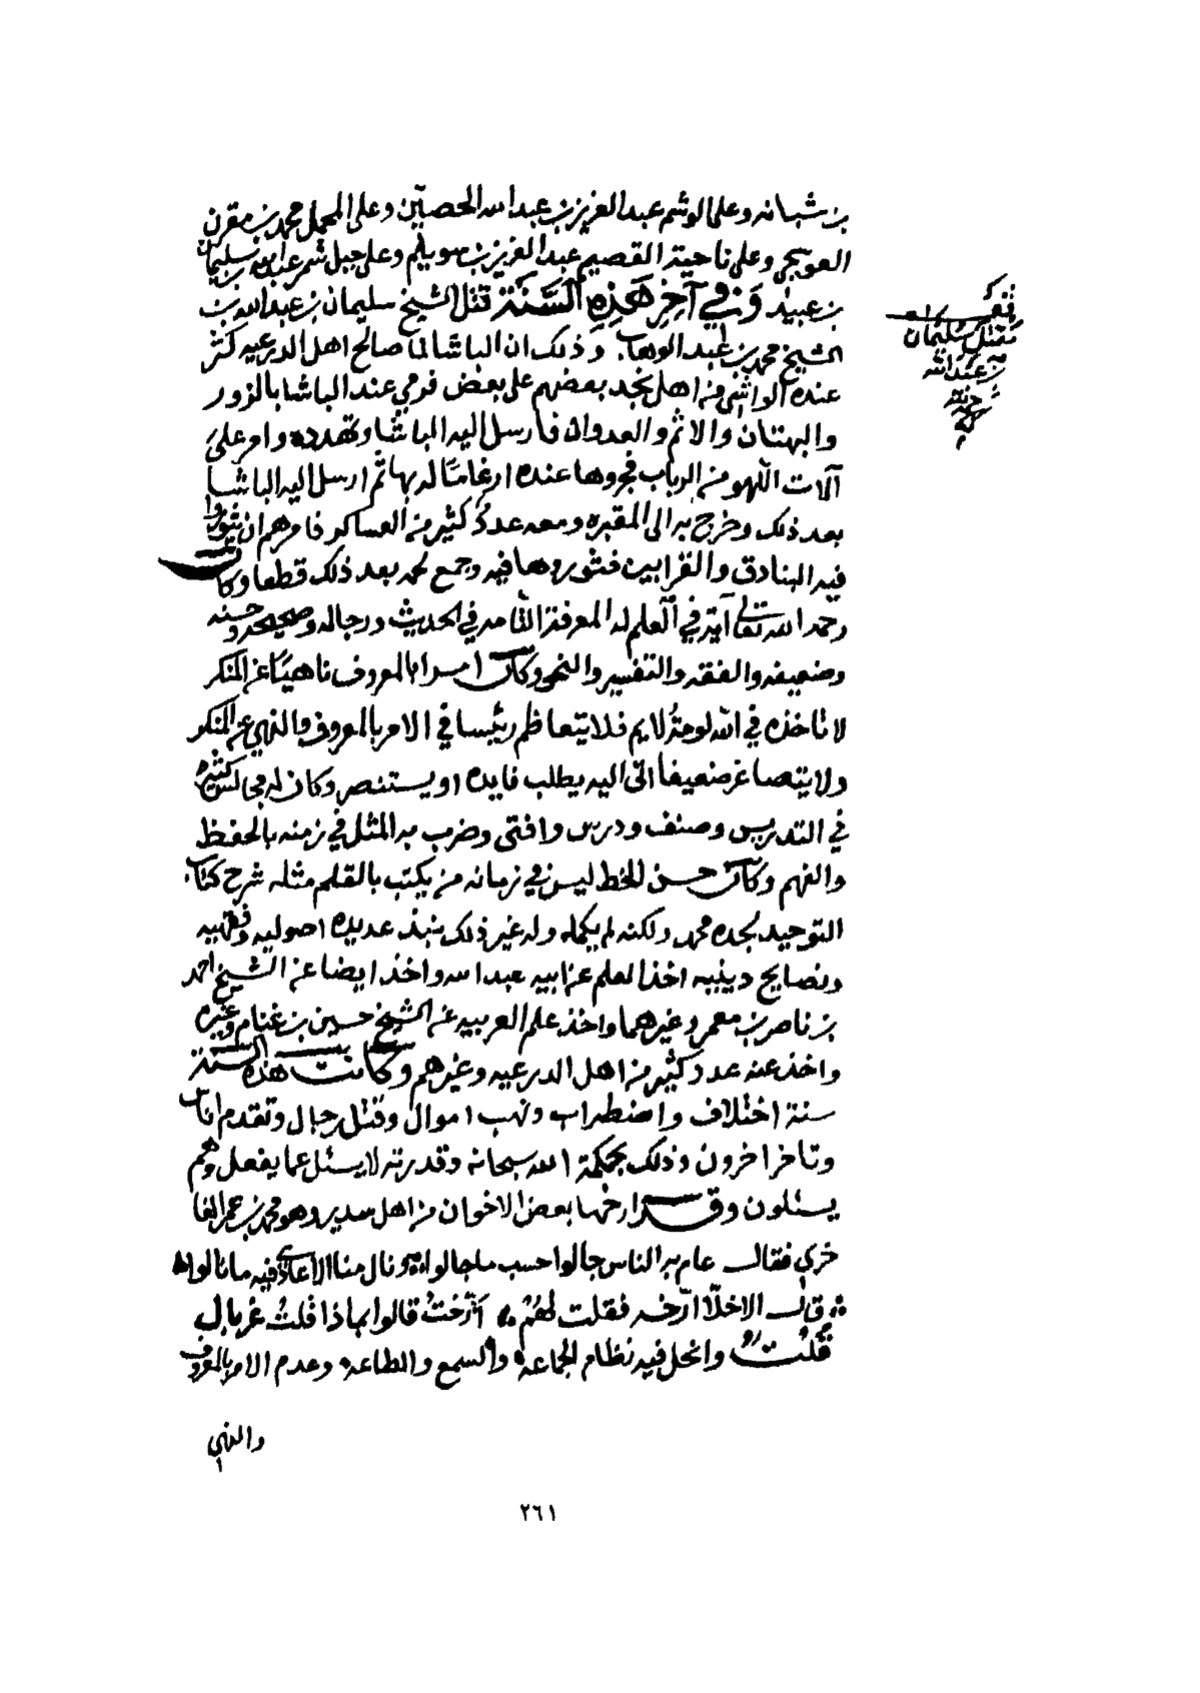 بن شبانه وعلى الوشم عبد العزيز بن عبد الله الحصين وعلى المحمل محمد بن مقرن
العوبجي وعلى ناحية القصيم عبد العزيز بن سويلم وعلى جبل شمر عبد الله بن سليمان
بن عبيد وَفِي آخِرِ هَذِهِ السَّنَة قتل الشيخ سليمان بن عبد الله بن
الشيخ محمد بن عبد الوهاب وذلك ان الباشا لما صالح اهل الدرعيه كثر
عنده الواشي من اهل نجد بعضهم على بعض فرمي عند الباشا بالزور
والبهتان والاثم والعدوان فارسل اليه الباشا وتهدده وامر على
آلات اللهو من الرباب فجروها عنده ارغاما له بها ثم ارسل اليه الباشا
بعد ذلك وخرج به الى المقبره ومعه عدد كثير من العساكر فامرهم ان يثوروا
فيه البنادق والقرابين فثوروها فيه وجمع لحمه بعد ذلك قطعا وكانت
رحمه الله تعالى آية في العلم له المعرفة التامه في الحديث ورجاله وصحيحه وحسنه
وضعيفه والفقه والتفسير والنحو وكان امرا بالمعروف ناهيا عن المنكر
لا تاخذه في الله لومة لايم فلا يتعاظم رئيسا في الامر بالمعروف والنهي عن المنكر
ولا يتصاغر ضعيفا اتى اليه يطلب فايده او يستنصر وكان له مجالس كثيره
في التدريس وصنف ودرس وافتى وضرب به المثل في زمنه بالحفظ
والفهم وكان حسن الخط ليس في زمانه من يكتب بالقلم مثله شرح كتاب
التوحيد لجده محمد ولكنه لم يكمله وله غير ذلك نبذ عديده اصوليه وفقهيه
ونصايح دينيه اخذ العلم عن ابيه عبد الله واخذ ايضا عن الشيخ احمد
بن ناصر بن معمر وغيرهما واخذ علم العربيه عن الشيخ حسين بن غنام وغيره
واخذ عنه عدد كثير من اهل الدرعيه وغيرهم وكانت هذه السنة
سنة اختلاف واضطراب ونهب اموال وقتل رجال وتقدم اناس
وتاخر اخرون وذلك بحكمة الله سبحانه وقدرته لا يسئل عما يفعل وهم
يسئلون وقد ارخها بعض الاخوان من اهل سدير وهو محمد بن عمر الفا
خري فقال عام به الناس جالوا حسب ما جالوا ونال منا الاعادي فيه ما نالوا
قال الاخلا ارخه فقلت لهم أرخت قالوا بماذا قلت غربال
قُلتُ وانحل فيه نظام الجماعه والسمع والطاعه وعدم الامر بالمعروف
والنهي
قف
مقتل سليمان
بن عبد الله
٢٦١